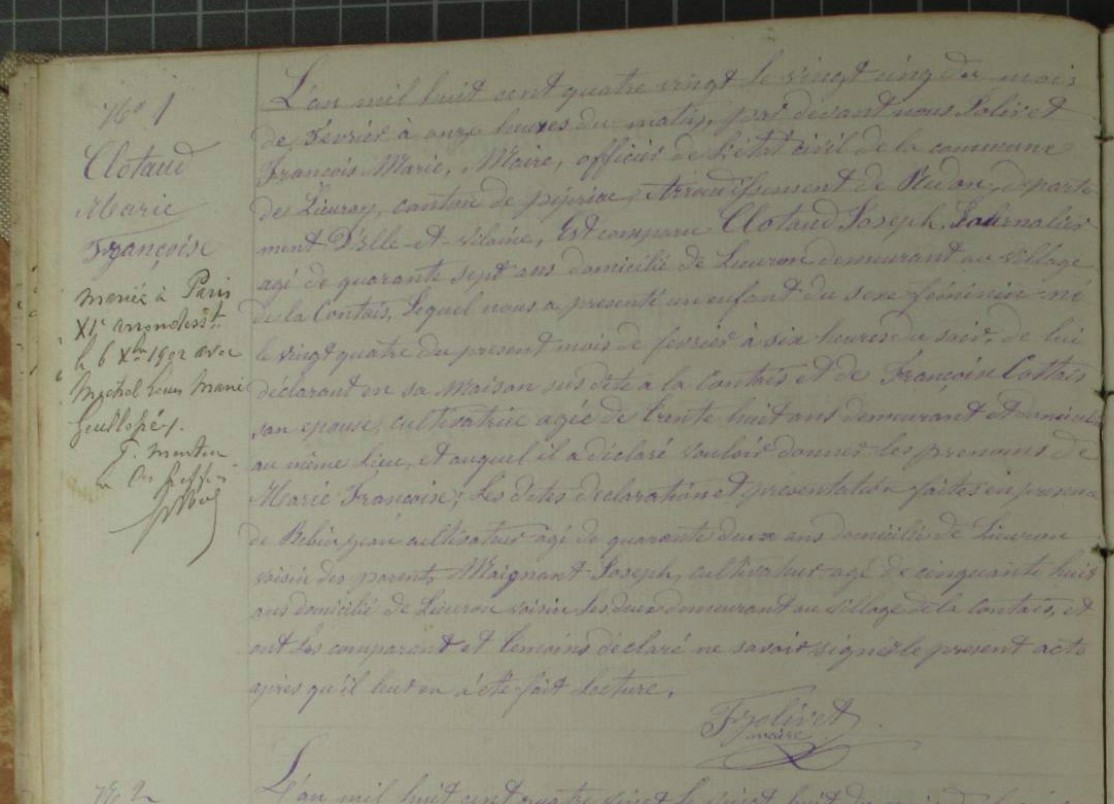 N° 1
Clotaud
Marie
Françoise
mariée à Paris
XIe arrondisst.
le 6 Xbre 1902 avec
Michel Louis Marie
Guillopé
L'an mil huit cent quatre vingt le vingt cinq du mois
de Février à onze heures du matin, par devant nous Solivet
François Marie, Maire, officier de l'état civil de la commune
de Lieuron, canton de pipriac, Arrondissement de Redon, departe
ment D'Ille-et-vilaine, Est comparu Clotaud Joseph, Journalier
agé de quarante sept ans domicilié de Lieuron demeurant au village
de la Contais, Lequel nous a presenté un enfant du sexe féminin né
le vingt quatre du present mois de fevrier à six heures du soir, de lui
déclarant en sa Maison sus dite a la Contais et de Françoise Costais
son epouse, cultivatrice agée de trente huit ans demeurant et domiciliée
au même lieu, et auquel il a déclaré vouloir donner les prenoms de
Marie Françoise; Les dites declaration et présentation faites en presence
de Bebin Jean cultivateur agé de quarante deux ans domicilié de Lieuron
voisin des parents, Maignant Joseph, cultivateur agé de cinquante huit
ans domicilié de Lieuron voisin les deux demeurant au village de la Contais, et
ont les comparant et temoins déclaré ne savoir signer le present acte
après qu'il leur en a été fait lecture.
F Solivet
maire
N° 2
L'an mil huit cent quatre vingt le vingt huit du mois de